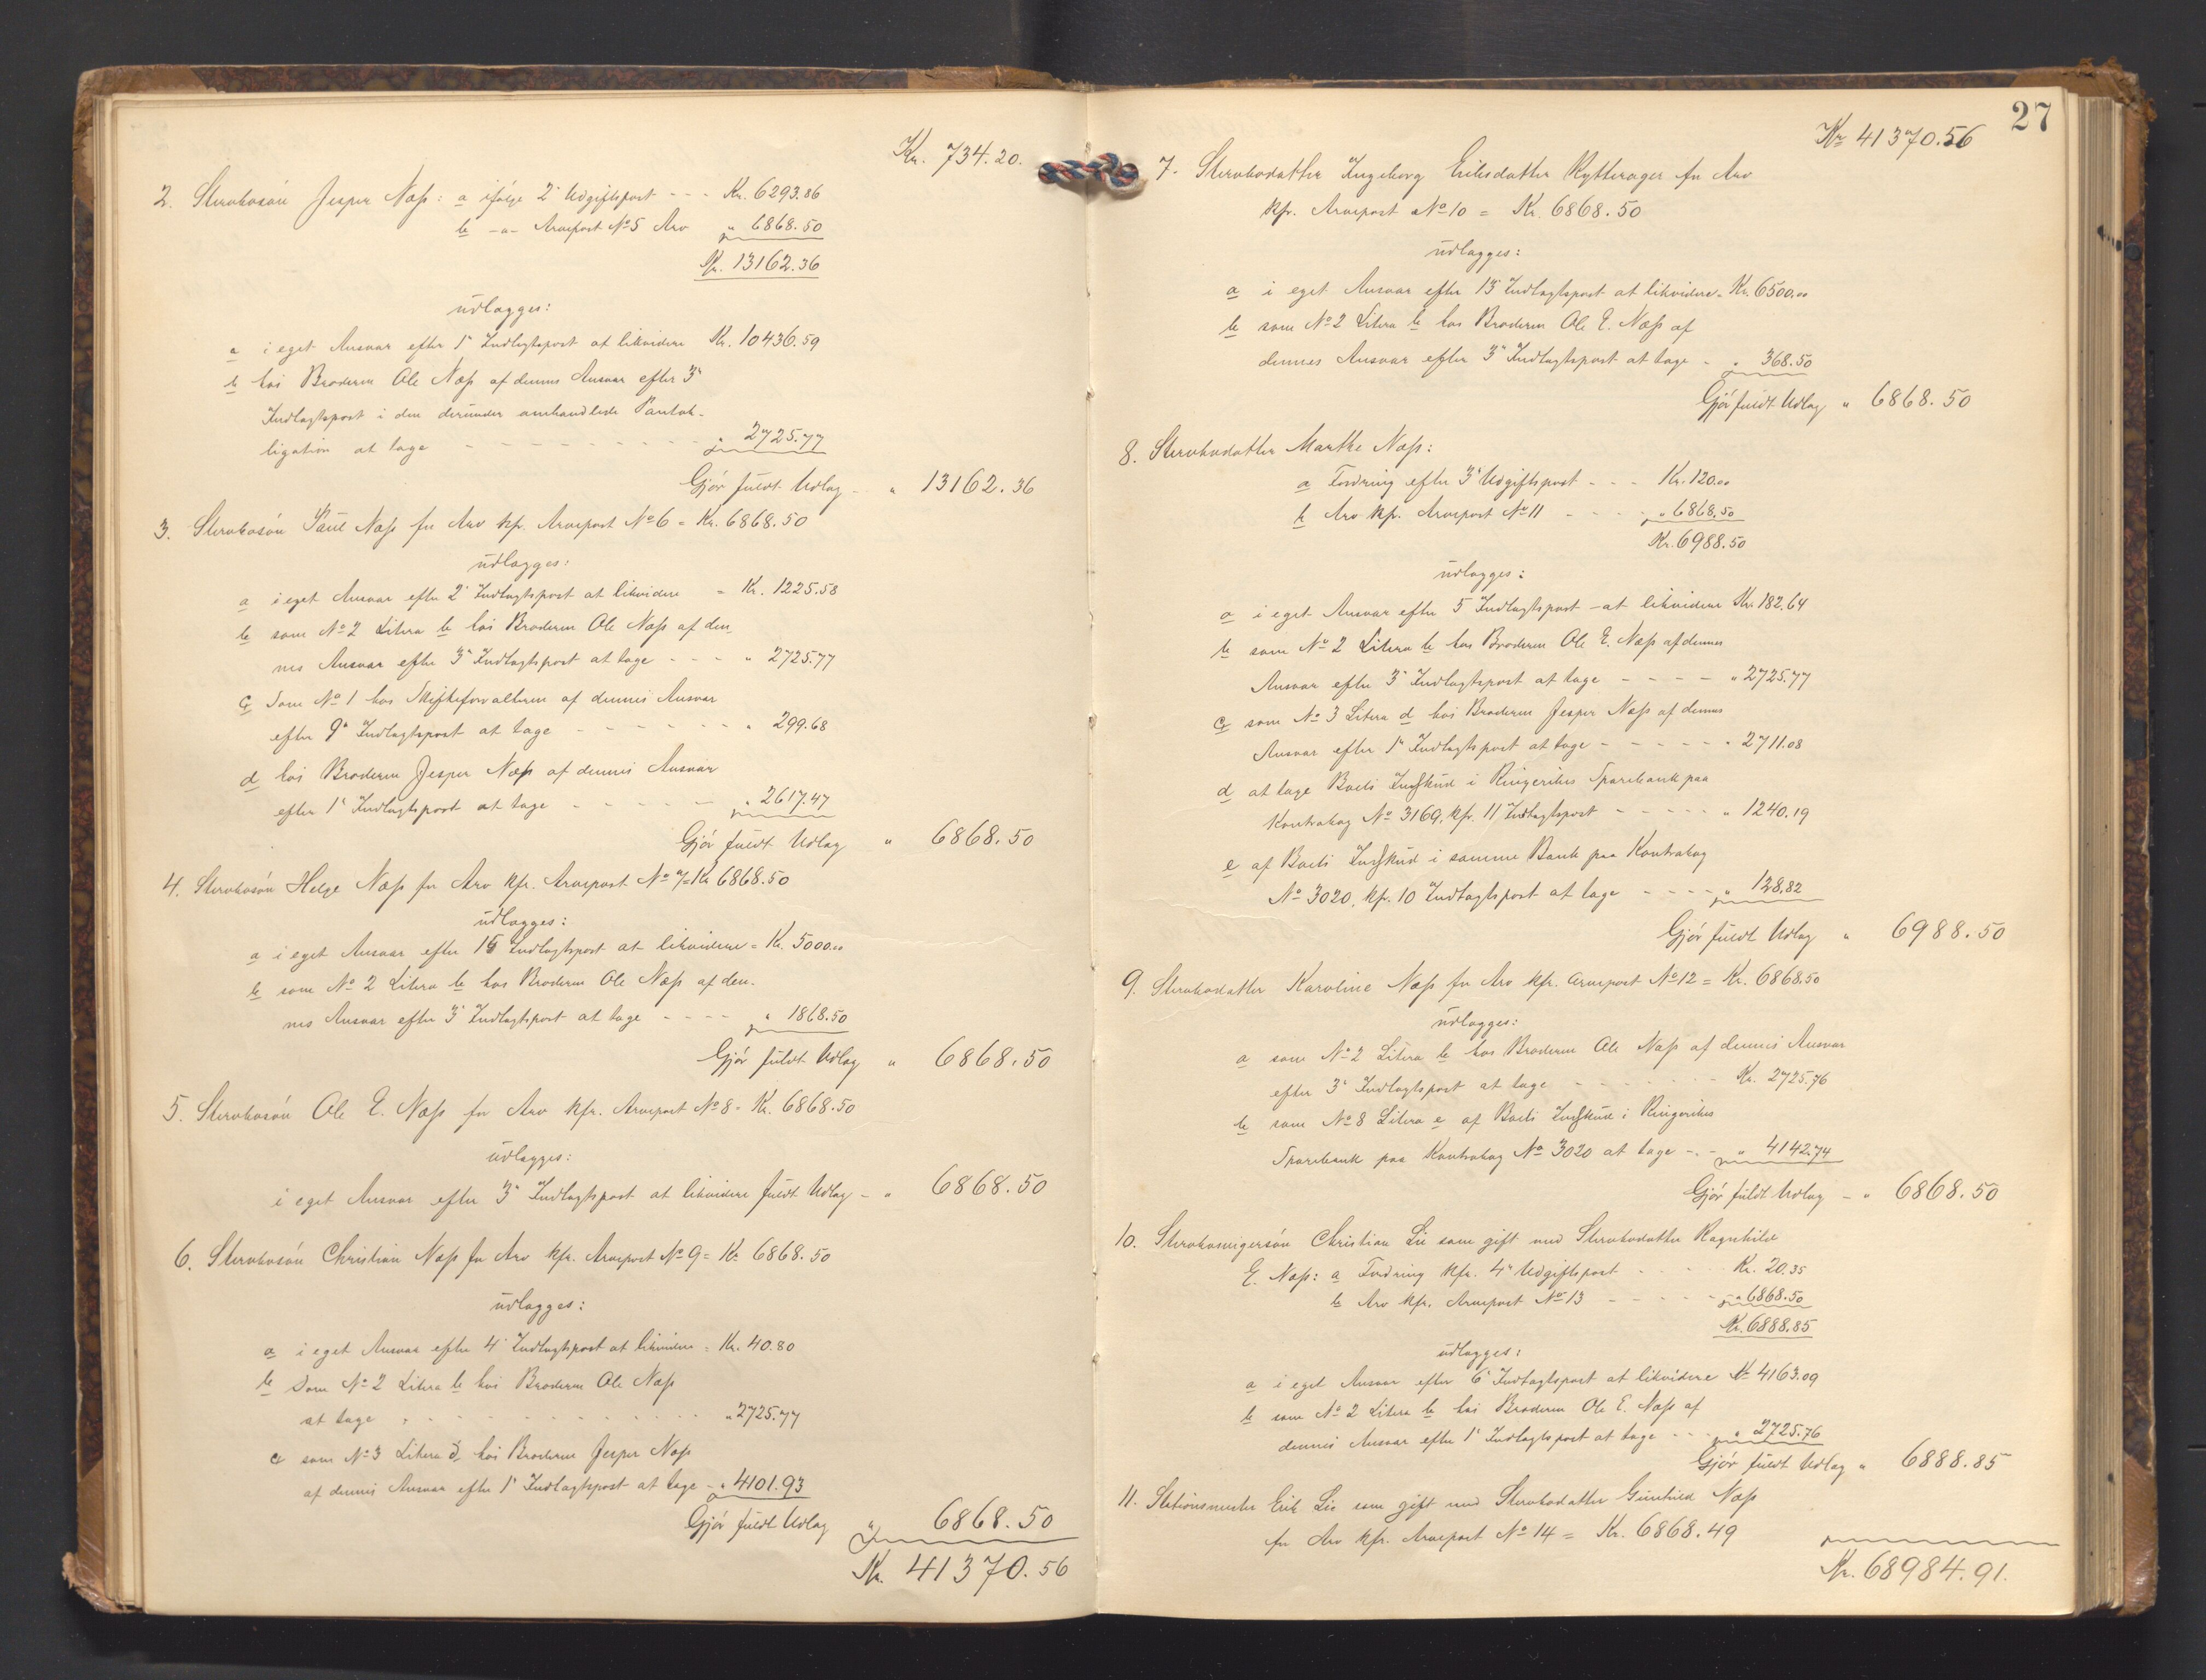 Kr. 734.20.
2. Stervbosön Jesper Næss: a ifölge 2' Udgiftspost - - - Kr. 6293.86
b -"- Arvepost No 5 Arv " 6868.50
Kr. 13162.36
udlægges:
a i eget Ansvar efter 1' Indtægtspost at likvidere Kr. 10436.59
b hos Broderen Ole Næss af dennes Ansvar efter 3'
Indtægtspost i den derunder omhandlede Pantob-
ligation at tage - - - - - - - - - " 2725.77
Gjör fuldt Udlæg - " 13162.36
3. Stervbosön Paul Næss for Arv kfr. Arvepost No 6 = Kr. 6868.50
udlægges:
a i eget Ansvar efter 2' Indtægtspost at likvidere = Kr. 1225.58
b som No 2 Litera b hos Broderen Ole Næss af den-
nes Ansvar efter 3' Indtægtspost at tage - - - " 2725.77
c Som No 1 hos Skifteforvalteren af dennes Ansvar
efter 9' Indtægtspost at tage - - - - - - " 299.68
d hos Broderen Jesper Næss af dennes Ansvar
efter 1' Indtægtspost at tage - - - - - " 2617.47
Gjör fuldt Udlæg " 6868.50
4. Stervbosön Helge Næss for Arv kfr. Arvepost No 7 = Kr 6868.50
udlægges:
a i eget Ansvar efter Indtægtspost at likvidere = Kr. 5000.00
b som No 2 Litera b hos Broderen Ole Næss af den-
nes Ansvar efter 3' Indtægtspost at tage - - - - " 1868.50
Gjör fuldt Udlæg " 6868.50
5. Stervbosön Ole E. Næss for Arv kfr. Arvepost No 8 = Kr. 6868.50
udlægges:
i eget Ansvar efter 3' Indtægtspost at likvidere fuldt Udlæg - " 6868.50
6. Stervbosön Christian Næss for Arv kfr. Arvepost No 9 = Kr 6868.50
udlægges:
a i eget Ansvar efter 4' Indtægtspost at likvidere = Kr. 40.80
b Som No 2 Litera b hos Broderen Ole Næss
at tage - - - - - - - - - - " 2725.77
c som No 3 Litera d hos Broderen Jesper Næss
af dennes Ansvar efter 1' Indtægtspost at tage - " 4101.93
Gjör fuldt Udlæg " 6868.50
Kr. 41370.56
27
Kr 41370.56
7. Stervbodatter Ingeborg Eriksdatter Rytterager for Arv
kfr. Arvepost No 10 = Kr. 6868.50
udlægges:
a i eget Ansvar efter 15 Indtægtspost at likvidere = Kr. 6500.00
b som No 2 Litera b hos Broderen Ole E. Næss af
dennes Ansvar efter 3' Indtægtspost at tage - " 368.50
Gjör fuldt Udlæg " 6868.50
8. Stervbodatter Marthe Næss:
a Fordring efter 3' Udgiftspost - - - Kr. 120.00
b Arv kfr. Arvepost No 11 - - - - " 6868.50
Kr. 6988.50
udlægges:
a i eget Ansvar efter 5 Indtægtspost at likvidere Kr. 182.64
b som No 2 Litera b hos Broderen Ole E. Næss af dennes
Ansvar efter 3' Indtægtspost at tage - - - - - " 2725.77
c som No 3 Litera d hos Broderen Jesper Næss af dennes
Ansvar efter 1' Indtægtspost at tage - - - - - " 2711.08
d at tage Boets Indskud i Ringerikes Sparebank paa
Kontrabog No 3169, kfr. 11 Indtægtspost - - - - - " 1240.19
e af Boets Indskud i samme Bank paa Kontrabog
No 3020, kfr. 10 Indtægtspost at tage - - - - " 128.82
Gjör fuldt Udlæg " 6988.50
9. Stervbodatter Karoline Næss for Arv kfr. Arvepost No 12 = Kr. 6868.50
udlægges:
a som No 2 Litera b hos Broderen Ole Næss af dennes Ansvar
efter 3' Indtægtspost at tage - - - - - - - Kr. 2725.76
b som No 8 Litera e af Boets Indskud i Ringerikes
Sparebank paa Kontrabog No 3020 at tage - - - " 4142.74
Gjör fuldt Udlæg - " 6868.50
10. Stervbosvigersön Christian Lie som gift med Stervbodatter Ragnhild
E. Næss: a Fordring kfr. 4' Udgiftspost - - - - Kr. 20.35
b Arv kfr. Arvepost No 13 - - - - - " 6868.50
Kr. 6888.85
udlægges:
a i eget Ansvar efter 6' Indtægtspost at likvidere Kr 4163.09
b som No 2 Litera b hos Broderen Ole E. Næss af
dennes Ansvar efter 1' Indtægtspost at tage - - - " 2725.76
Gjör fuldt Udlæg " 6888.85
11. Stationsmester Erik Lie som gift med Stervbodatter Gunhild Næss
for Arv kfr. Arvepost No 14 = Kr. 6868.49
Kr. 68984.91.